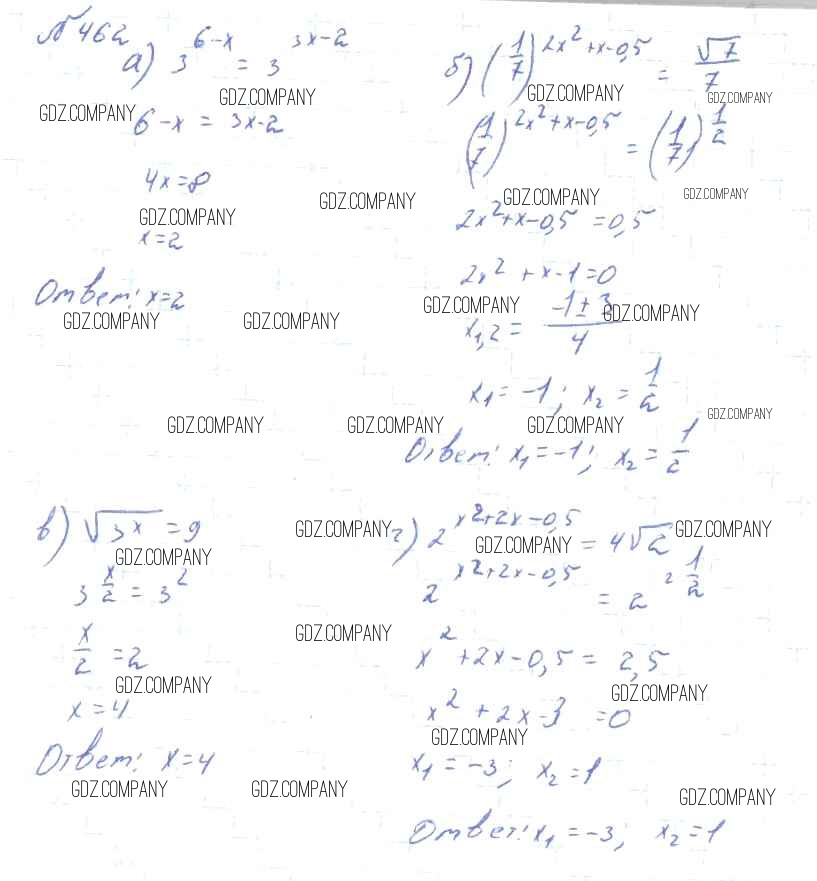 № 462
а) 3^(6-x) = 3^(3x-2)
GDZ.COMPANY GDZ.COMPANY
6-x = 3x-2
4x=8
GDZ.COMPANY
x=2
Ответ: x=2
GDZ.COMPANY GDZ.COMPANY
б) (1/7)^(2x²+x-0,5) = √7/7
GDZ.COMPANY GDZ.COMPANY
(1/7)^(2x²+x-0,5) = (1/7)^(1/2)
GDZ.COMPANY GDZ.COMPANY GDZ.COMPANY
2x²+x-0,5 = 0,5
2x² + x-1=0
GDZ.COMPANY GDZ.COMPANY
x₁,₂ = (-1±3)/4
x₁ = -1; x₂ = 1/2
GDZ.COMPANY GDZ.COMPANY GDZ.COMPANY GDZ.COMPANY
Ответ: x₁=-1; x₂ = 1/2
в) √(3^x) = 9
GDZ.COMPANY
3^(x/2) = 3²
x/2 = 2
GDZ.COMPANY
x = 4
Ответ: x=4
GDZ.COMPANY GDZ.COMPANY
GDZ.COMPANY
г) 2^(x²+2x-0,5) = 4√2
GDZ.COMPANY GDZ.COMPANY
2^(x²+2x-0,5) = 2^(2 1/2)
GDZ.COMPANY
x² +2x-0,5 = 2,5
GDZ.COMPANY
x² + 2x-3 =0
GDZ.COMPANY
x₁ = -3; x₂ = 1
GDZ.COMPANY
Ответ: x₁ = -3; x₂ = 1